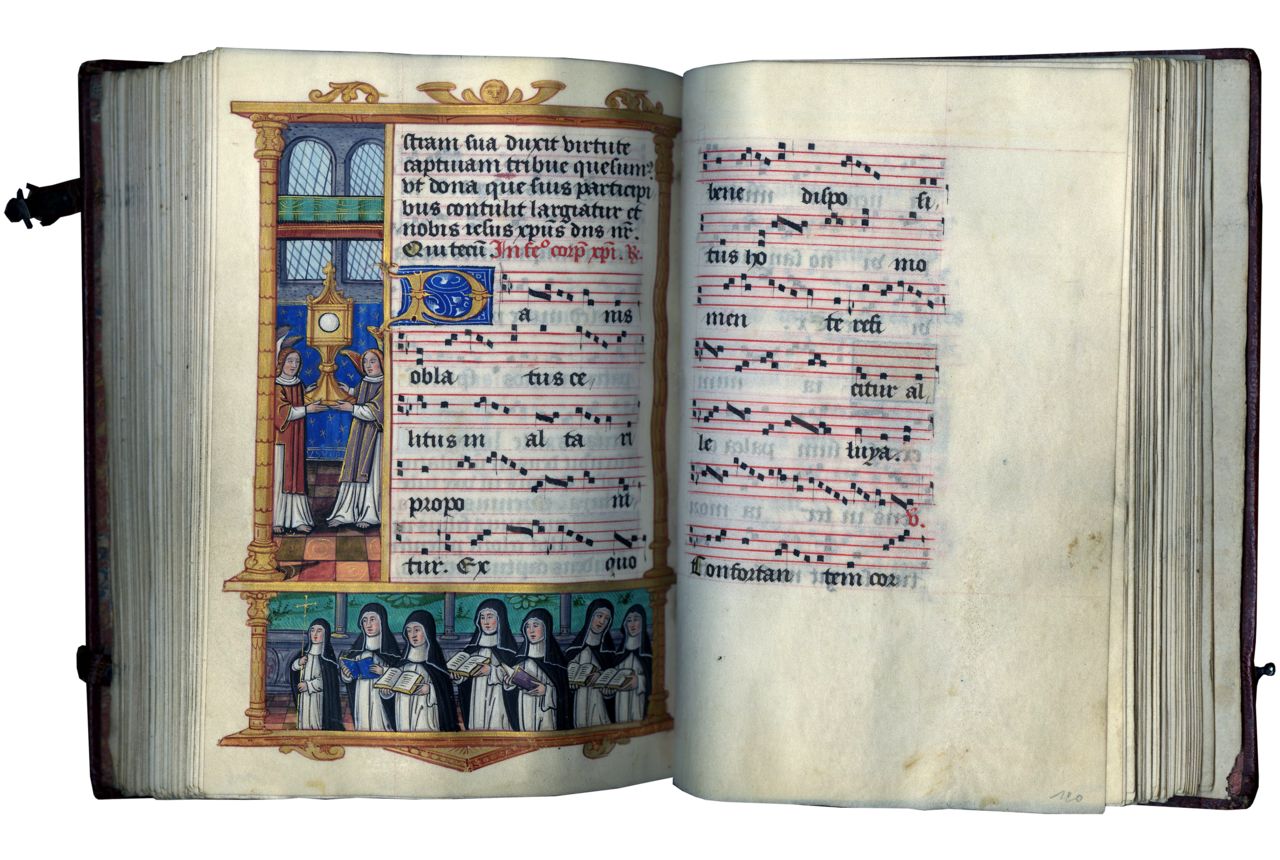 stram sua duxit virtute
captiuam tribue quesum⁹
vt dona que suis participi
bus contulit largiatur et
nobis iesus xp̄us dn̄s nr̄.
Qui tecū. In fe° corp̄ xp̄i. R.
P a nis
obla tus ce,
litus in al ta ri
propo ni
tur. Ex quo
bene dispo si,
tus ho mo
men te refi
citur al,
le luya.
V.
Confortan tem cor
120